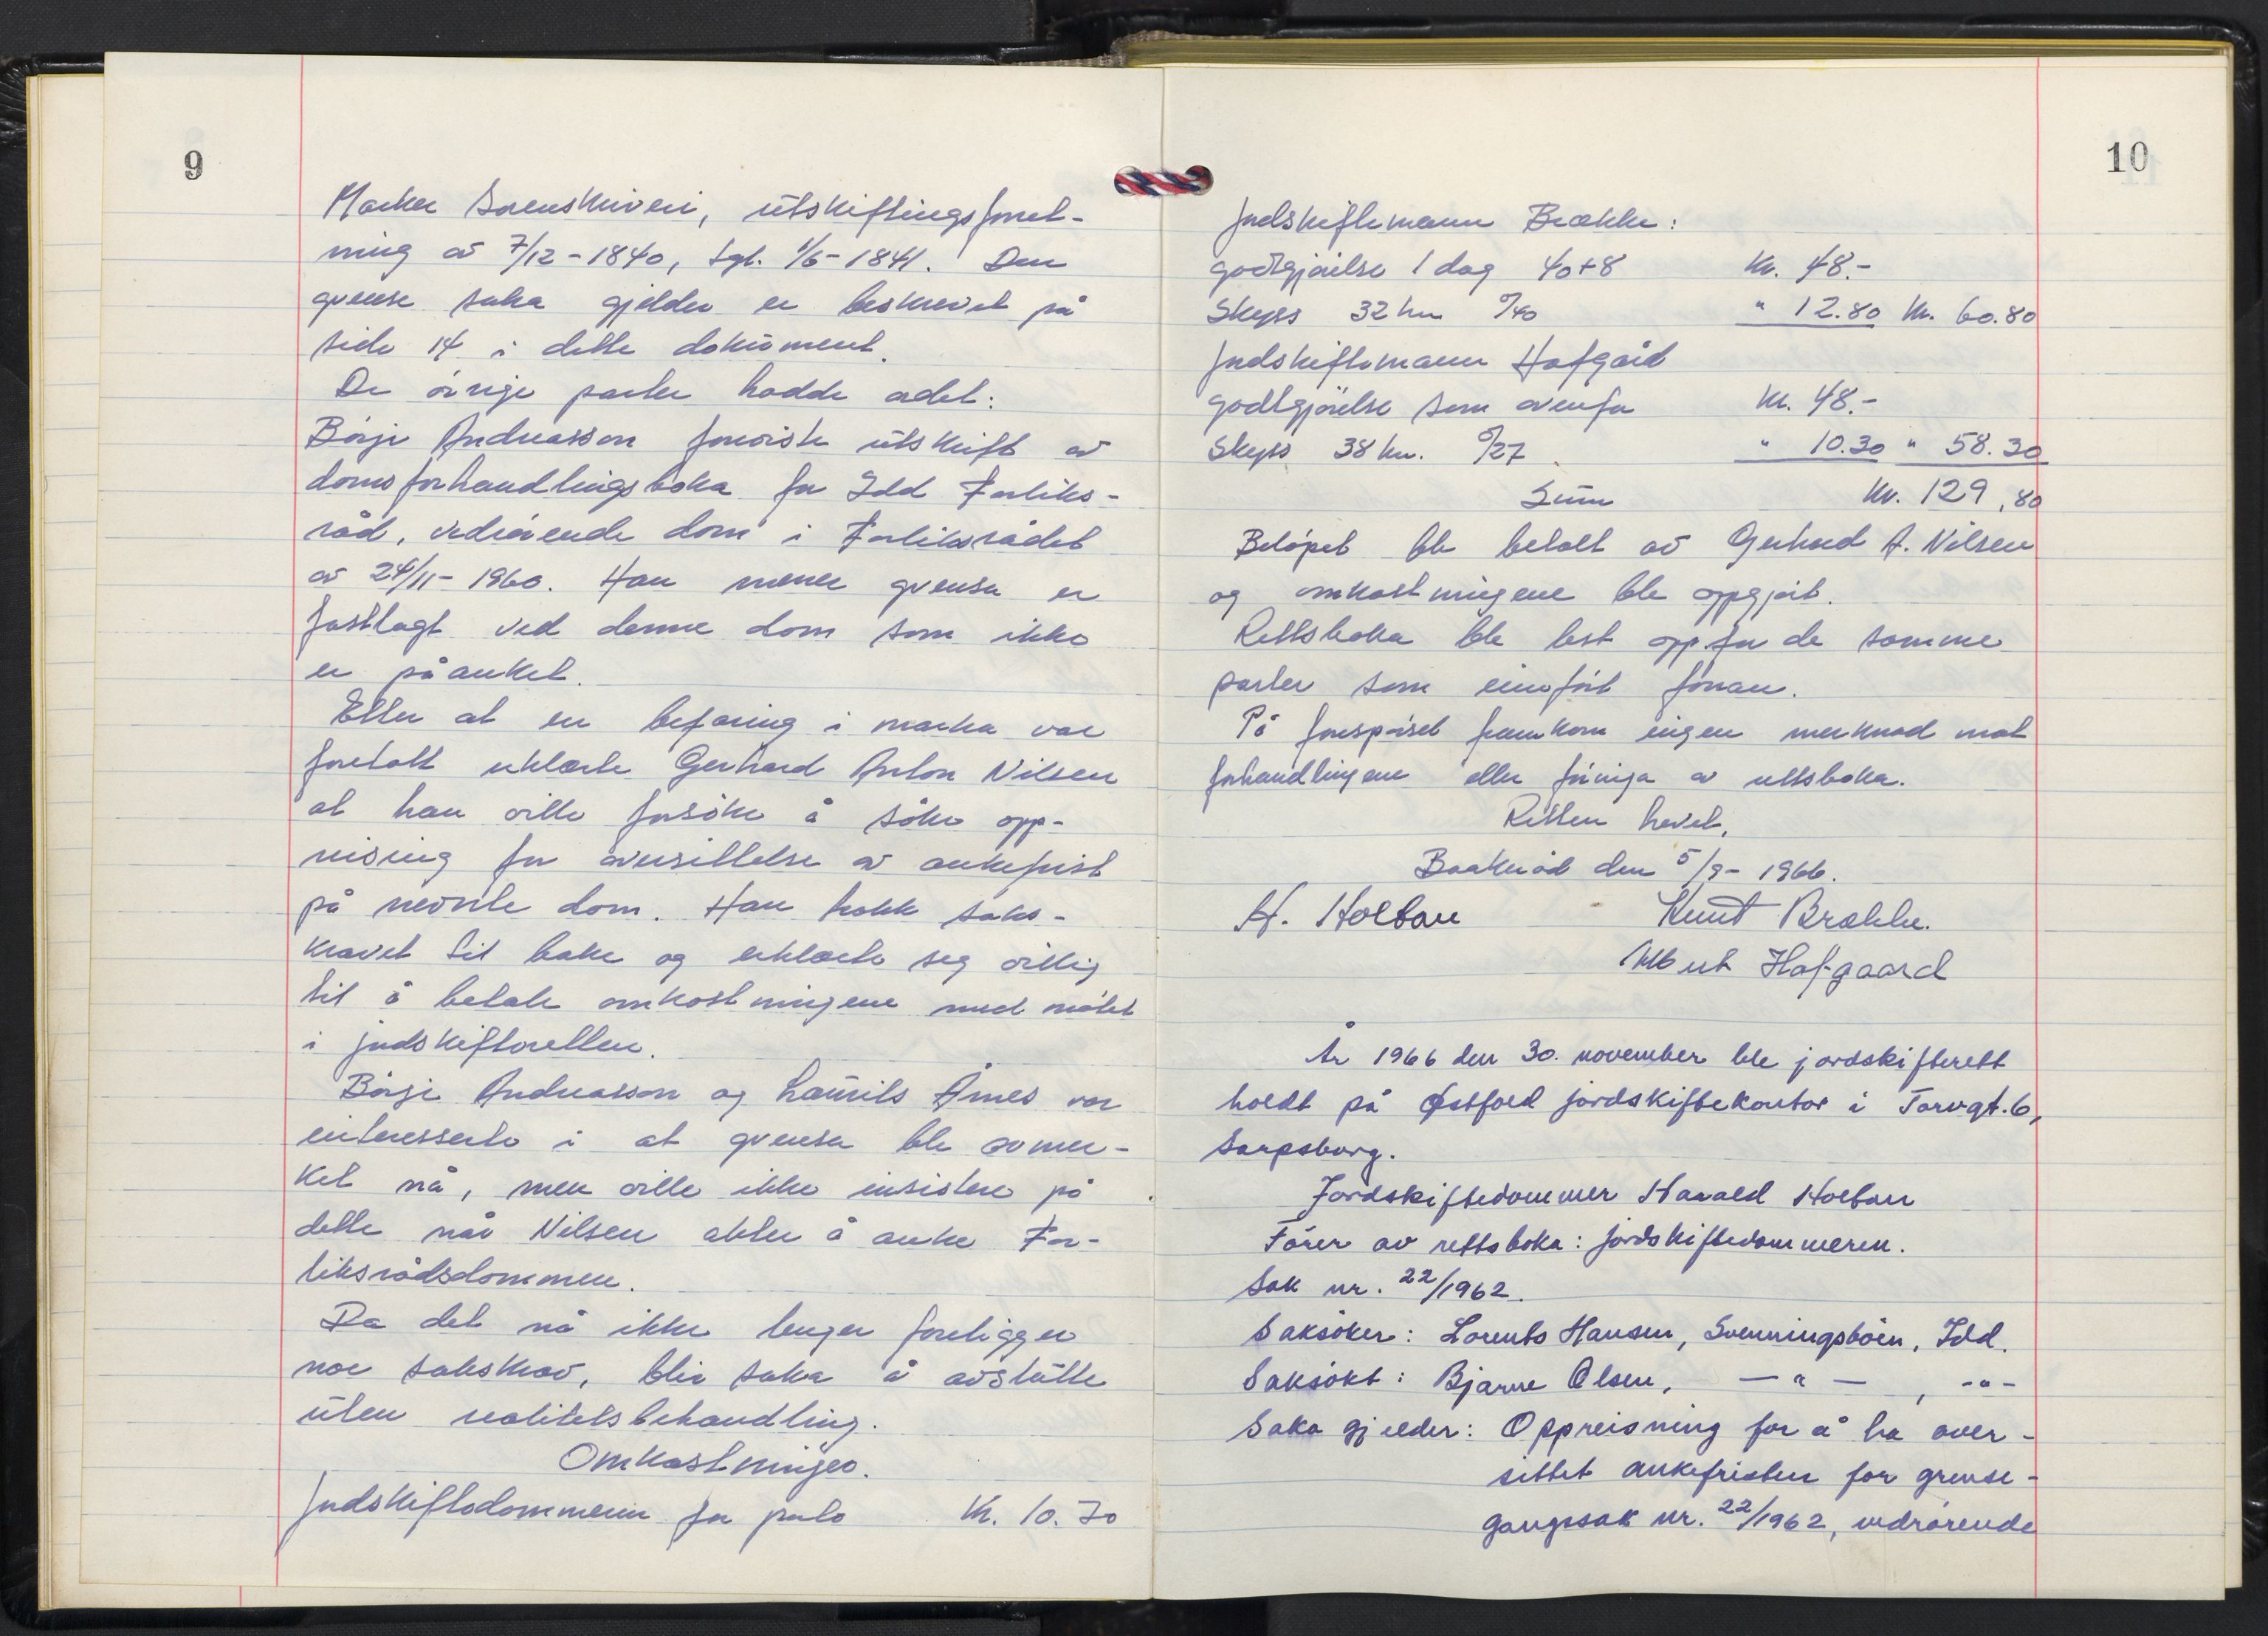 9
Marker Sorenskriveri, utskiftingsforret-
ning av 7/12-1840, tgl. 1/6-1841. Den
grense saka gjelder er beskrevet på
side 14 i dette dokument.
De øvrige parter hadde ordet:
Börje Andreasson foreviste utskrift av
domsforhandlingsboka for Idd Forliks-
råd, vedrørende dom i Forliksrådet
av 24/11-1960. Han mener grensa er
fastlagt ved denne dom som ikke
er påanket.
Etter at en befaring i marka var
foretatt erklærte Gerhard Anton Nilsen
at han ville forsöke å söke opp-
reising for oversittelse av ankefrist
på nevnte dom. Han trakk saks-
kravet til bake og erklærte seg villig
til å betale omkostningene med møtet
i jordskifteretten.
Börje Andreasson og Laurits Årnes var
interesserte i at grensa ble avmer-
ket nå, men ville ikke insistere på
dette når Nilsen akter å anke For-
liksrådsdommen.
Da det nå ikke lenger foreligger
noe sakskrav, blir saka å avslutte
uten realitetsbehandling.
Omkostninger.
Jordskiftedommeren for porto Kr. 10.70
10
Jordskiftemann Brække:
godtgjörelse 1 dag 40+8 Kr. 48.-
Skyss 32 km 0/40 " 12.80 Kr. 60.80
Jordskiftemann Hafgård
godtgjörelse som ovenfor Kr. 48.-
Skyss 38 km. 0/27 " 10.30 " 58.30
Sum Kr. 129,80
Beløpet ble betalt av Gerhard A. Nilsen
og omkostningene ble oppgjort.
Rettsboka ble lest opp for de samme
parter som innfört foran.
På forespörsel framkom ingen merknad mot
forhandlingene eller föringa av rettsboka.
Retten hevet,
Bakkeröd den 5/9-1966.
H. Holtan Knut Brække.
Albert Hafgaard
År 1966 den 30. november ble jordskifterett
holdt på Østfold jordskiftekontor i Torvgt. 6,
Sarpsborg.
Jordskiftedommer Harald Holtan
Förer av rettsboka: jordskiftedommeren.
Sak nr. 22/1962.
Saksöker: Lorents Hansen, Svenningsböen, Idd.
Saksökt: Bjarne Olsen, — " — , -"-
Saka gjelder: Oppreisning for å ha over-
sittet ankefristen for grense-
gangssak nr. 22/1962, vedrørende